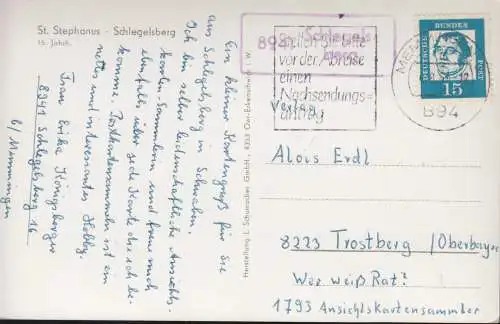 St. Stephanus - Schlegelsberg
15. Jahrh.
Ein kleiner Kartengruß für Sie
aus Schlegelsberg in Schwaben.
Ich bin selber leidenschaftliche Ansichts-
karten-Sammlerin und freue mich
ebenfalls über jede Karte die ich be-
komme. Postkartensammeln ist ein
nettes und interessantes Hobby.
Frau Erika Königsberger
8941 Schlegelsberg 16
b/ Memmingen
Herstellung L. Schumacher GmbH., 8353
Schlegels-
berg
894
Teilen Sie bitte
vor der Abreise
einen
Nachsendungs=
antrag
894
DEUTSCHE BUNDES POST
15
Verlag
Alois Erdl
8223 Trostberg /Oberbayer
Wer weiß Rat?
1793 Ansichtskartensammler